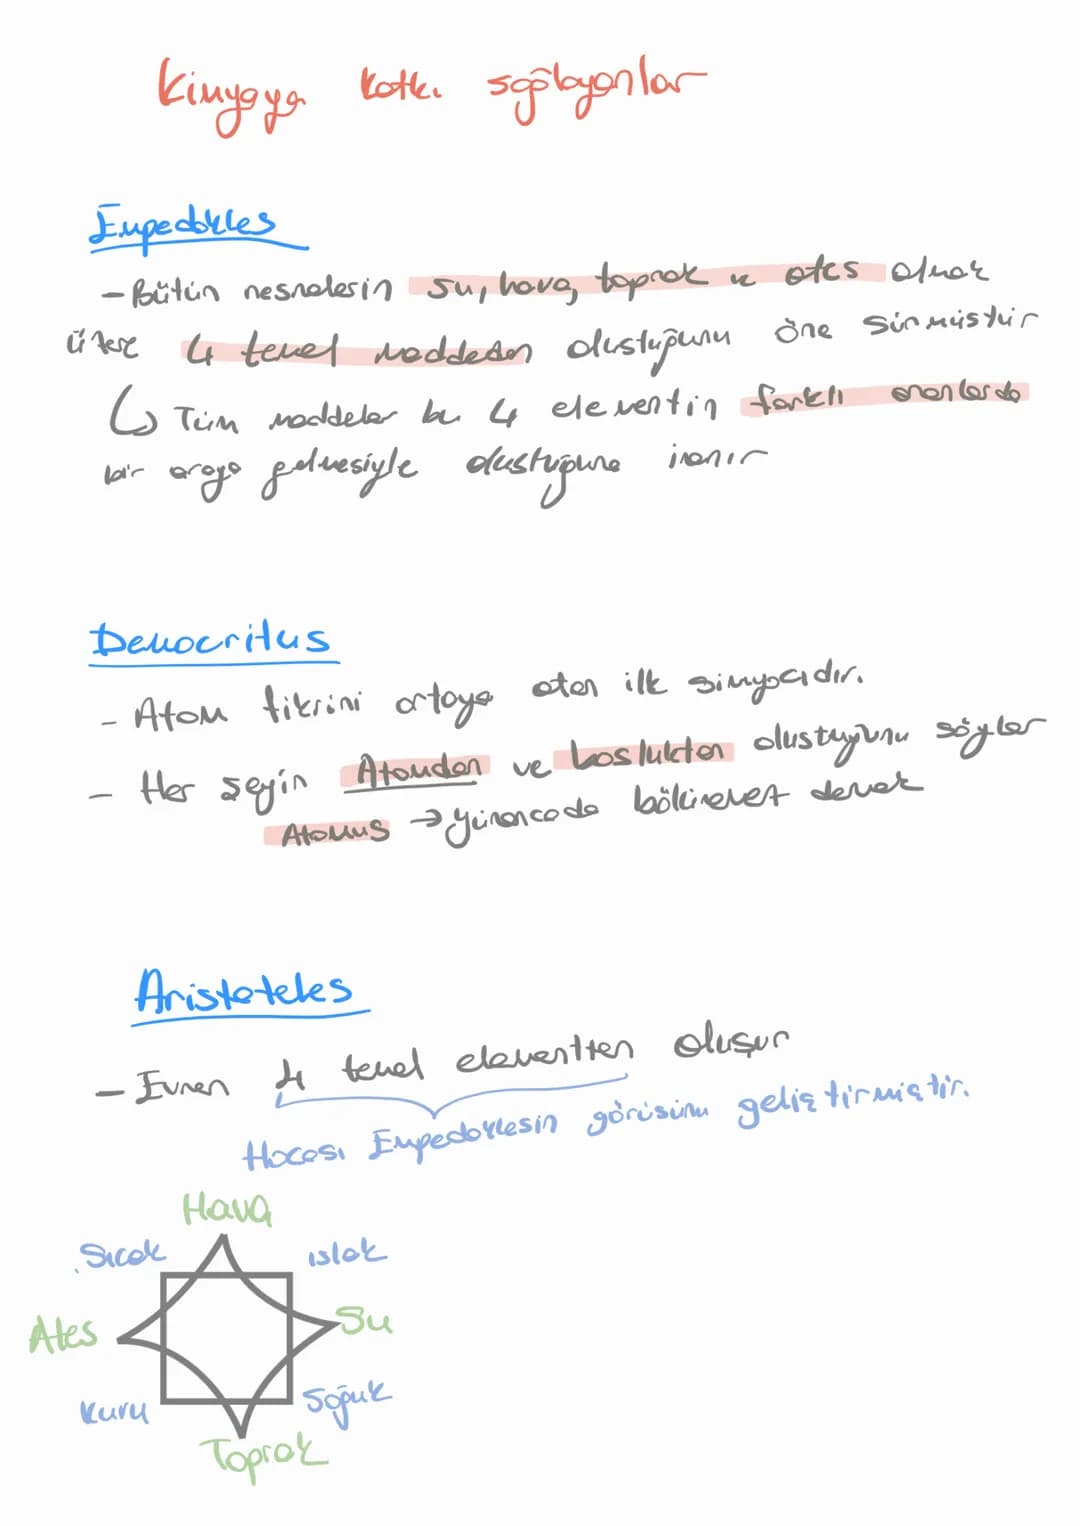 Kimyaya katkı sağlayanlar
Empedokles
- Bütün nesnelerin su, hava, toprak ve ates olmak
üzere 4 temel maddeden olustuğunu öne sürmüstür
↳ Tüm maddeler bu 4 elementin farklı oranlarda
bir araya gelmesiyle olustuğuna inanır
Democritus
- Atom fikrini ortaya atan ilk simyacıdır.
- Her şeyin Atomdan ve bosluktan olustuğunu söyler
Atomus → yunancada bölünemez demek
Aristoteles
- Evren 4 temel elementten oluşur
Hocası Empedoklesin görüsünü geliştirmiştir.
Hava
Sıcak ıslak
Ates Su
Kuru Soğuk
Toprak